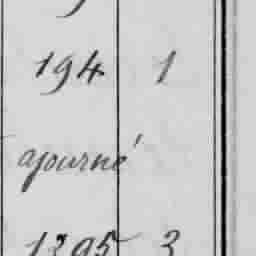 194 1
ajourné
1395 3